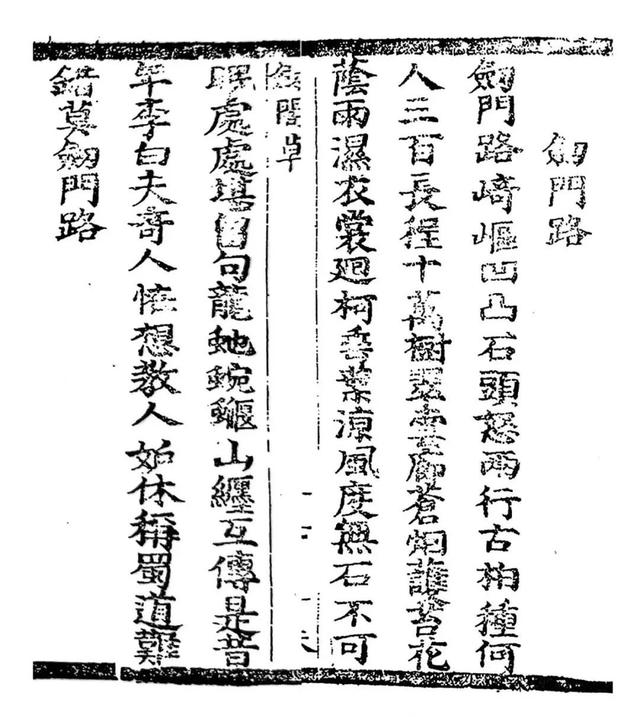 劍門路
劍門路崎嶇凹凸石頭怒兩行古柏種何
人三百長程十萬樹翠雲廊蒼烟護苔花
蔭雨濕衣裳廻柯垂葉涼風度無石不可
劍閣草
眠處處堪留句龍虵蜿蜒山纒互傳是昔
年李白夫奇人恠想教人妒休稱蜀道難
錯莫劍門路